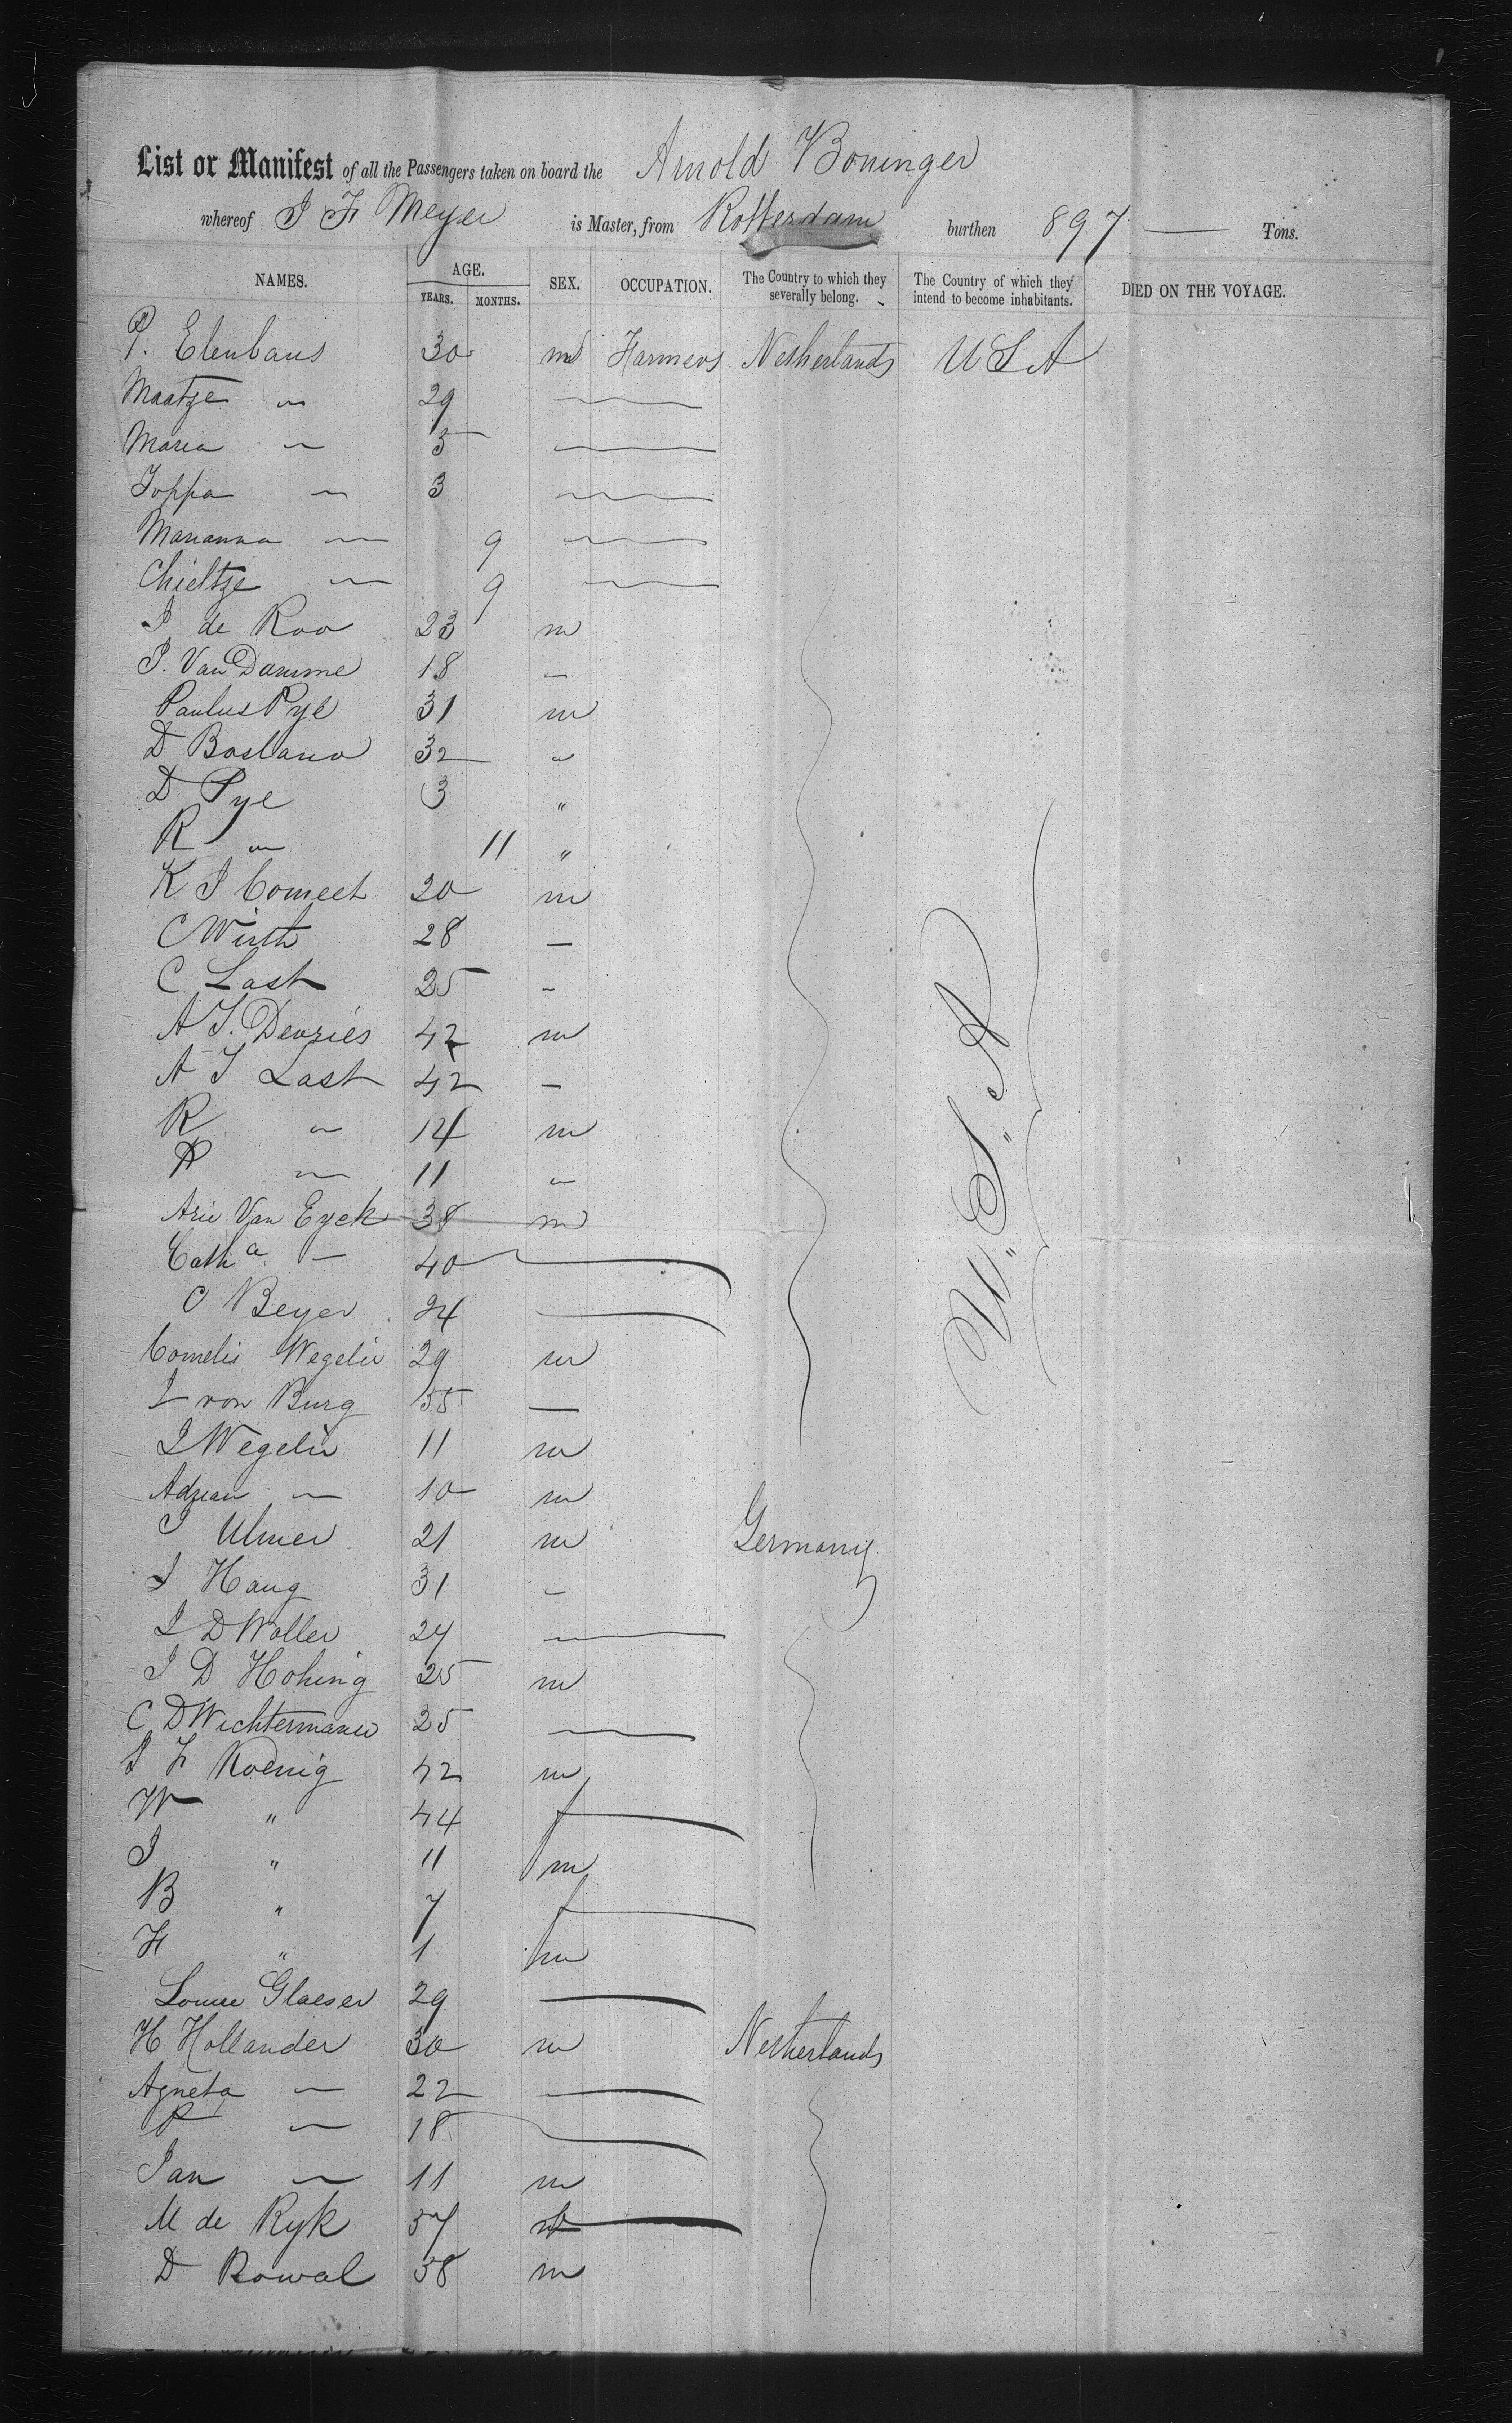 List or Manifest of all the Passengers taken on board the Arnold Boninger
whereof J F Meyer is Master, from Rotterdam burthen 897 — Tons.
NAMES. AGE. SEX. OCCUPATION. The Country to which they severally belong. The Country of which they intend to become inhabitants. DIED ON THE VOYAGE.
YEARS. MONTHS.
P. Elenbaus 30 m Farmers Netherlands USA
Maatze " 29 —
Maria " 5 —
Joppa " 3 —
Marianna " 9 —
Chieltze " 9 —
J de Roo 23 m
P. Van Damme 18 —
Paulus Pye 31 m
D Boslano 32 "
D Pye 3 "
R " 11 "
K J Comeet 20 m
C Wirth 28 —
C. Last 25 -
A J. Devries 42 m
A J Last 42 —
R " 14 m
P " 11 "
Arie Van Eyck 38 m
Cath a — 40 —
C Beyer 24 —
Cornelis Wegelie 29 m
L von Burg 35 —
J Wegelie 11 m
Adrean " 10 m
J Ulmer 21 m Germany
J Haug 31 -
J D Woller 24 —
J D Hohing 25 m
C D Wichtermann 25 —
J F Koenig 42 m
W " 44 f
J " 11 m
B " 7 f
F " 1 m
Louise Glaeser 29 —
H Hollander 30 m Netherlands
Agneta " 22 —
P " 18 —
Jan " 11 m
M de Ryk 37 —
D Rowal 38 m
U. S. A